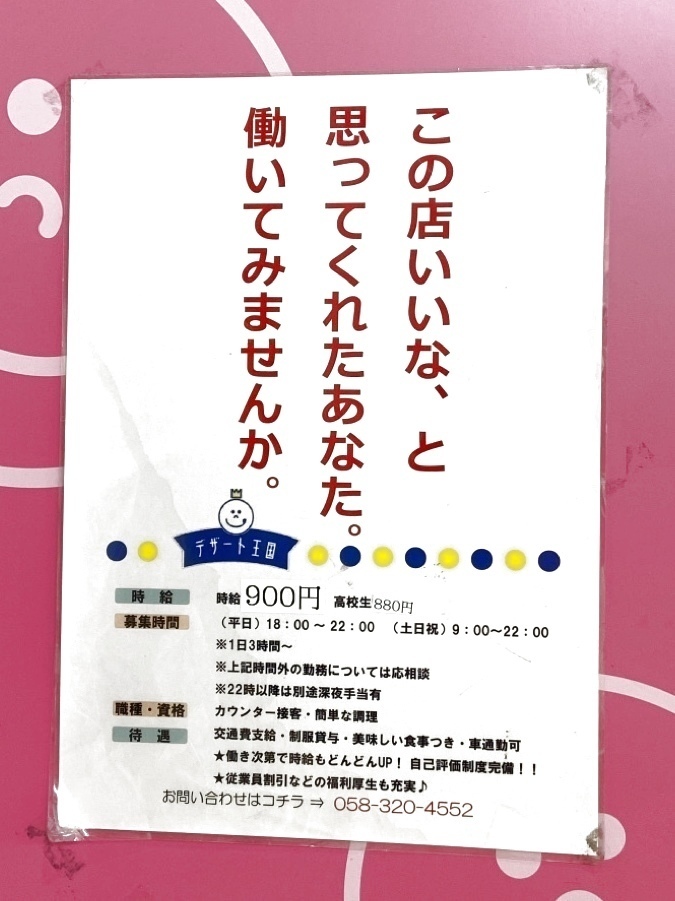 この店いいな、と
思ってくれたあなた。
働いてみませんか。
デザート王国
時給 時給900円 高校生880円
募集時間 (平日)18:00～22:00 (土日祝)9:00～22:00
※1日3時間～
※上記時間外の勤務については応相談
※22時以降は別途深夜手当有
職種・資格 カウンター接客・簡単な調理
待遇 交通費支給・制服貸与・美味しい食事つき・車通勤可
★働き次第で時給もどんどんUP! 自己評価制度完備!!
★従業員割引などの福利厚生も充実♪
お問い合わせはコチラ⇒ 058-320-4552